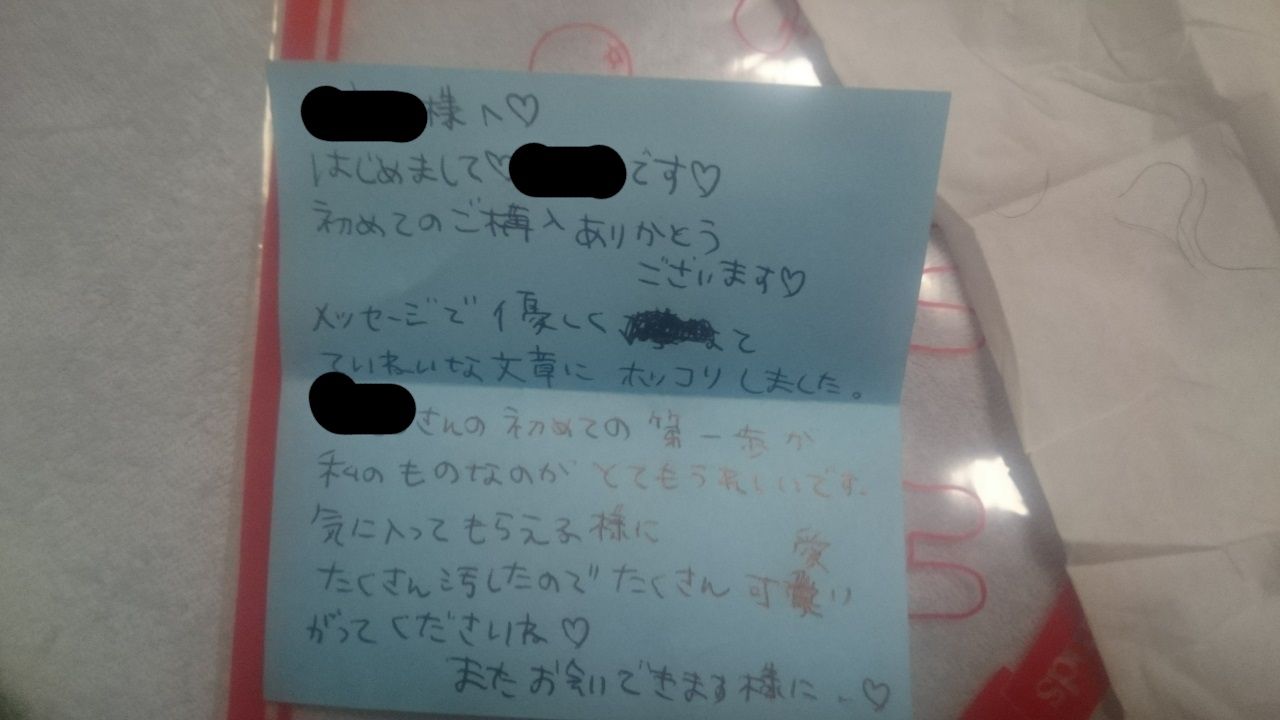 様へ♡
はじめまして♡ です♡
初めてのご構入ありがとう
ございます♡
メッセージで優しく て
ていねいな文章にホッコリしました。
さんの初めての第一歩が
私のものなのがとてもうれしいです。
気に入ってもらえる様に
たくさん汚したのでたくさん可愛い
がってくださいね♡
またお会いできます様に ♡